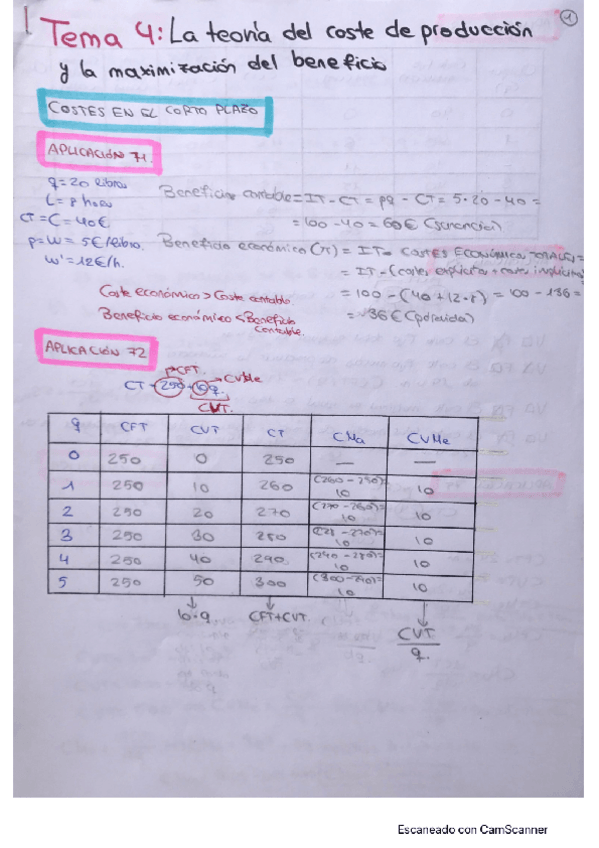 1
Tema 4: La teoría del coste de producción
y la maximización del beneficio
COSTES EN EL CORTO PLAZO
APLICACIÓN 71.
q=20 libros
L=8 horas
CT=C=40€
p=W=5€/libro.
W'=12€/h.
Beneficio contable=IT-CT=pq-CT=5·20-40=
=100-40=60€ (ganancia)
Beneficio económico(π)=IT-COSTES ECONÓMICOS TOTALES=
=IT-(costes explícitos+costes implícitos)=
=100-(40+12·8)=100-136=
=-36€(pérdida)
Coste económico>Coste contable.
Beneficio económico<Beneficio
Contable.
APLICACIÓN 72
CFT.
CT=250+10q
CVMe
CVT.
q CFT CVT CT CMa CVMe
0 250 0 250 — —
1 250 10 260 (260-250)=10 10
2 250 20 270 (270-260)=10 10
3 250 30 280 10 10
4 250 40 290 (290-280)=10 10
5 250 50 300 (300-290)=10 10
10·q CFT+CVT. CVT
q.
Escaneado con CamScanner